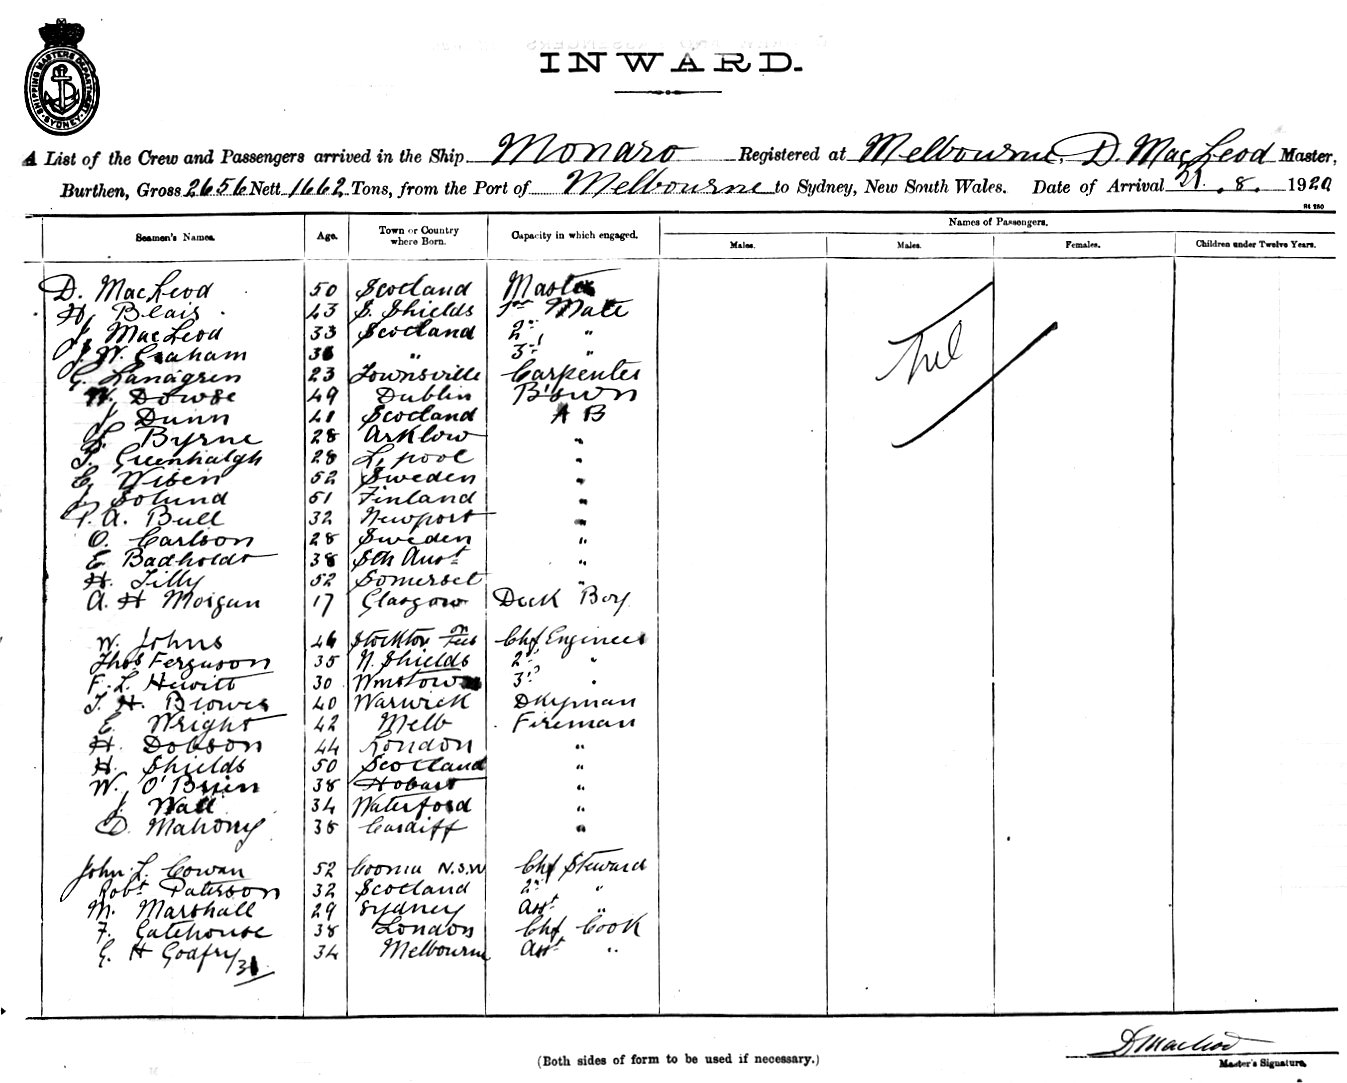 SHIPPING MASTERS DEPARTMENT SYDNEY
INWARD.
A List of the Crew and Passengers arrived in the Ship Monaro Registered at Melbourne, D. MacLeod Master,
Burthen, Gross 2656 Nett 1662 Tons, from the Port of Melbourne to Sydney, New South Wales. Date of Arrival 21. 8. 1920
Seamen's Names. Age. Town or Country where Born. Capacity in which engaged. Names of Passengers.
Males. Males. Females. Children under Twelve Years.
D. MacLeod 50 Scotland Master
H. Blair 43 S. Shields 1st Mate
J. MacLeod 33 Scotland 2nd "
J. W. Graham 36 " 3rd "
Nil
G. Landgren 23 Townsville Carpenter
W. Dowse 49 Dublin B'swn
J. Dunn 41 Scotland A B
J. Byrne 28 Arklow "
T. Greenhalgh 28 L'pool "
E. Wisen 52 Sweden "
J. Solund 51 Finland "
P. A. Bull 32 Newport "
O. Carlson 28 Sweden "
E. Badholdt 38 Sth Aust "
H. Tilly 52 Somerset "
A. H Morgan 17 Glasgow Deck Boy
W. Johns 46 Stockton on Tees Chf Engineer
Thos Ferguson 35 N. Shields 2nd "
F. L. Hewitt 30 3rd "
T. H. Brower 40 Warwick Dkyman
E. Wright 42 Melb Fireman
H. Dobson 44 London "
H. Shields 50 Scotland "
W. O'Brien 38 Hobart "
J. Wall 34 Waterford "
D. Mahony 36 Cardiff "
John L. Cowan 52 Cooma N.S.W Chf Steward
Robt Paterson 32 Scotland 2nd "
M. Marshall 29 Sydney Asst "
F. Gatehouse 38 London Chf Cook
G. H Godfry 34 Melbourne Asst "
31
D MacLeod
(Both sides of form to be used if necessary.)
Master's Signature.